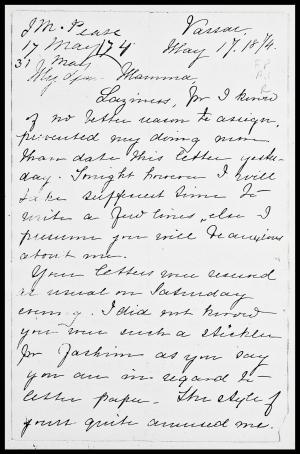 J M. Pease Vassar,
17 May 74 May 17. 1874.
My dear Mamma,
Laziness, for I know
of no better reason to assign,
prevented my doing more
than date this letter yester-
day. Tonight however I will
take sufficient time to
write a few lines, else I
presume you will be anxious
about me.
Your letters were received
as usual on Saturday
evening. I did not know
you were such a stickler
for fashion as you say
you are in regard to
letter paper. The style of
yours quite amused me.